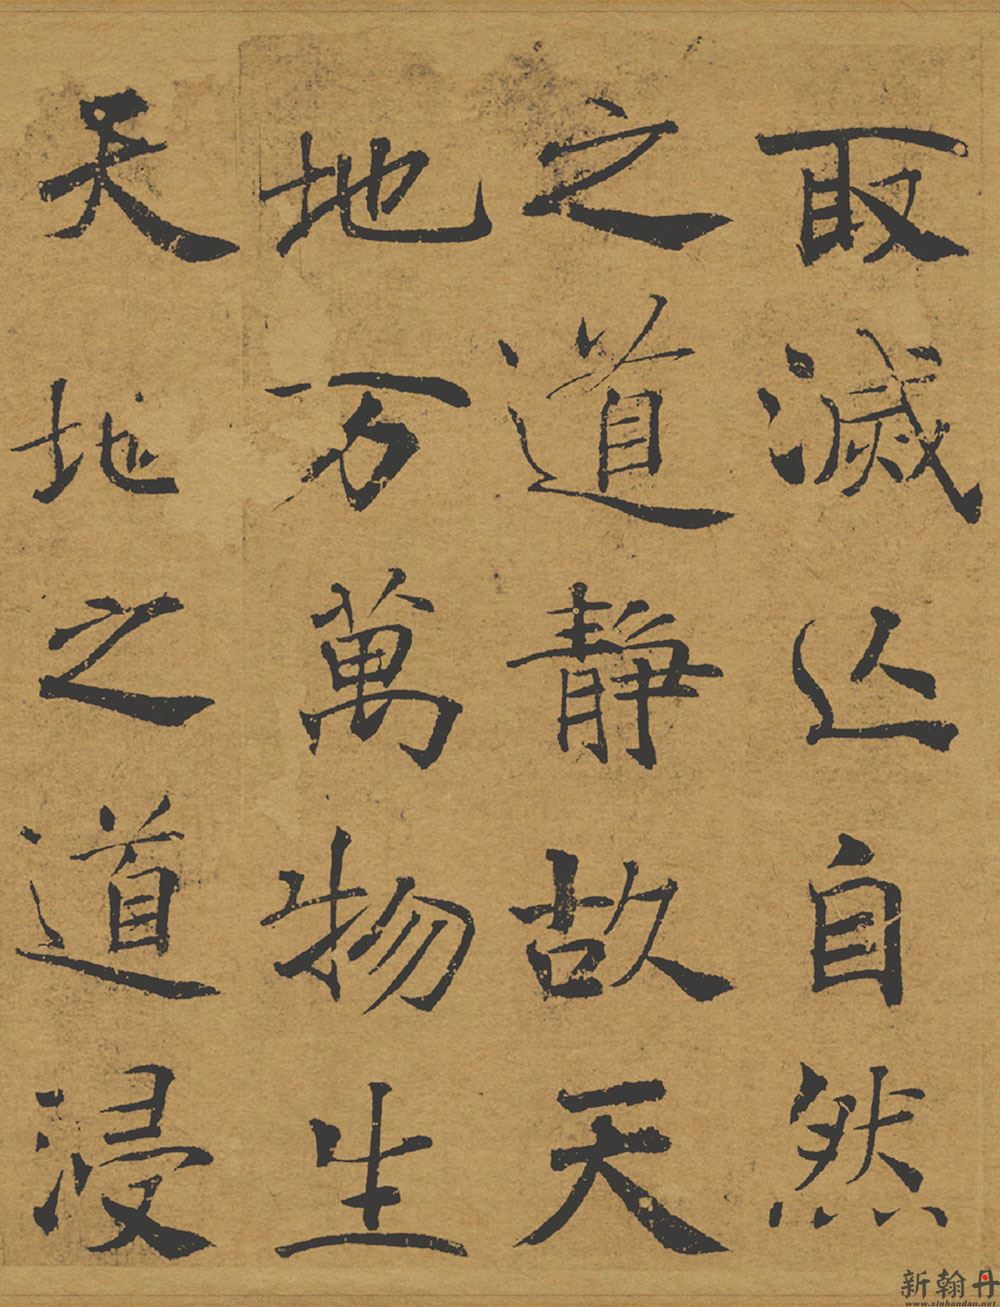 取滅亾自然
之道靜故天
地万萬物生
天地之道浸
新翰丹
www.xinhandan.net